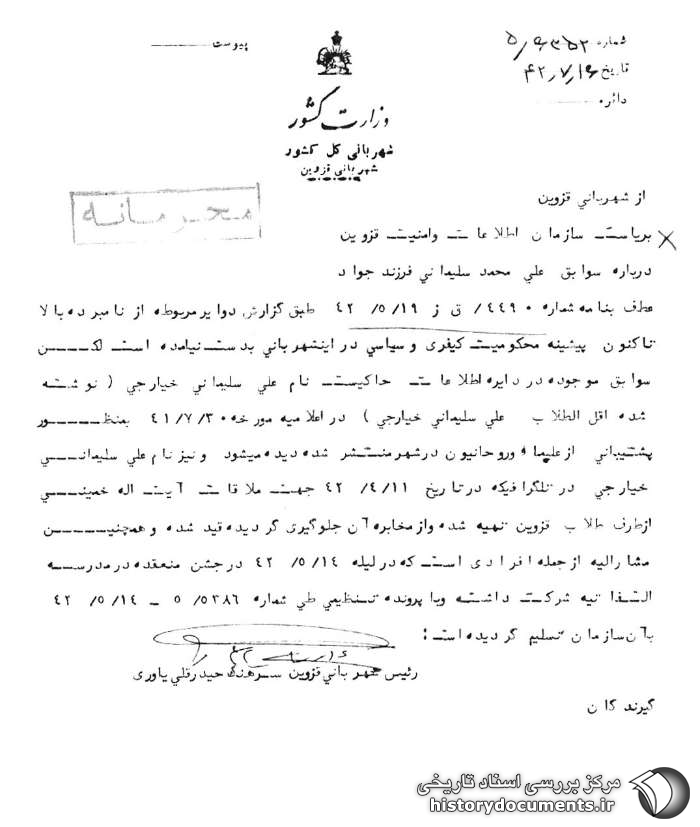 شماره ۵/۶۳۵۲
تاریخ ۴۲/۷/۱۶
دائره
پیوست
وزارت کشور
شهربانی کل کشور
شهربانی قزوین
محرمانه
از شهربانی قزوین
بریاست سازمان اطلاعات وامنیت قزوین
درباره سوابق علی محمد سلیمانی فرزند جواد
عطف بنامه شماره ۴۴۹۰/ ق ز ۴۲/۵/۱۹ طبق گزارش دوایر مربوطه از نامبرده بالا
تاکنون پیشینه محکومیت کیفری و سیاسی در اینشهربانی بدست نیامده است لکن
سوابق موجوده در دایره اطلاعات حاکیست نام علی سلیمانی خیارجی ( نوشته
شده اقل الطلاب علی سلیمانی خیارجی ) در اعلامیه مورخه ۴۱/۷/۳۰ بمنظور
پشتیبانی از علما وروحانیون در شهر منتشر شده دیده میشود و نیز نام علی سلیمانی
خیارجی در تلگرافیکه در تاریخ ۴۲/۴/۱۱ جهت ملاقات آیت اله خمینی
از طرف طلاب قزوین تهیه شده واز مخابره آن جلوگیری گردیده قید شده و همچنین
مشارالیه از جمله افرادی است که در لیله ۴۲/۵/۱۴ در جشن منعقده در مدرسه
التفاتیه شرکت داشته وبا پرونده تنظیمی طی شماره ۵/۵۳۸۶ – ۴۲/۵/۱۴
بآن سازمان تسلیم گردیده است :
رئیس شهربانی قزوین سرهنگ حیدرقلی یاوری
گیرندگان
مرکز بررسی اسناد تاریخی
historydocuments.ir